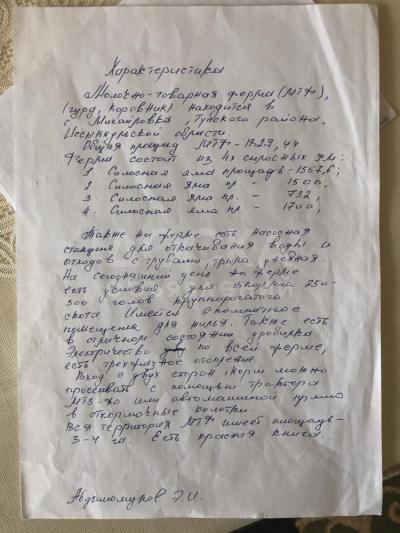 Характеристика
Молочно-товарная ферма (МТФ),
(гурд, коровник) находится в
с. Михайловка, Тупского района,
Иссыккульской области.
Общая площад МТФ - 1929,44
Ферма состоит из 4х силосных ям:
1. Силосная яма площадь - 1557,6;
2. Силосная яма пл. - 1500;
3. Силосная яма пл. - 732,
4. Силосная яма пл - 1700;
Также на ферме есть насосная
станция для откачивания воды и
отходов с трубами,
На сегодняшний день на ферме
есть условия для откорма 250-
300 голов крупнорогатого
скота. Имеется комнатное
помещение для жилья. Также есть
в отличном состоянии дробилка.
Электричество по всей ферме,
есть трехфазное отопление.
Вход с двух сторон, корм можно
просеивать с помощью трактора
МТЗ-80 или автомашиной прямо
в откормочные колотки.
Вся территория МТФ имеет площадь-
3-4 га. Есть красная книга.
Абдымомунов Э.И.